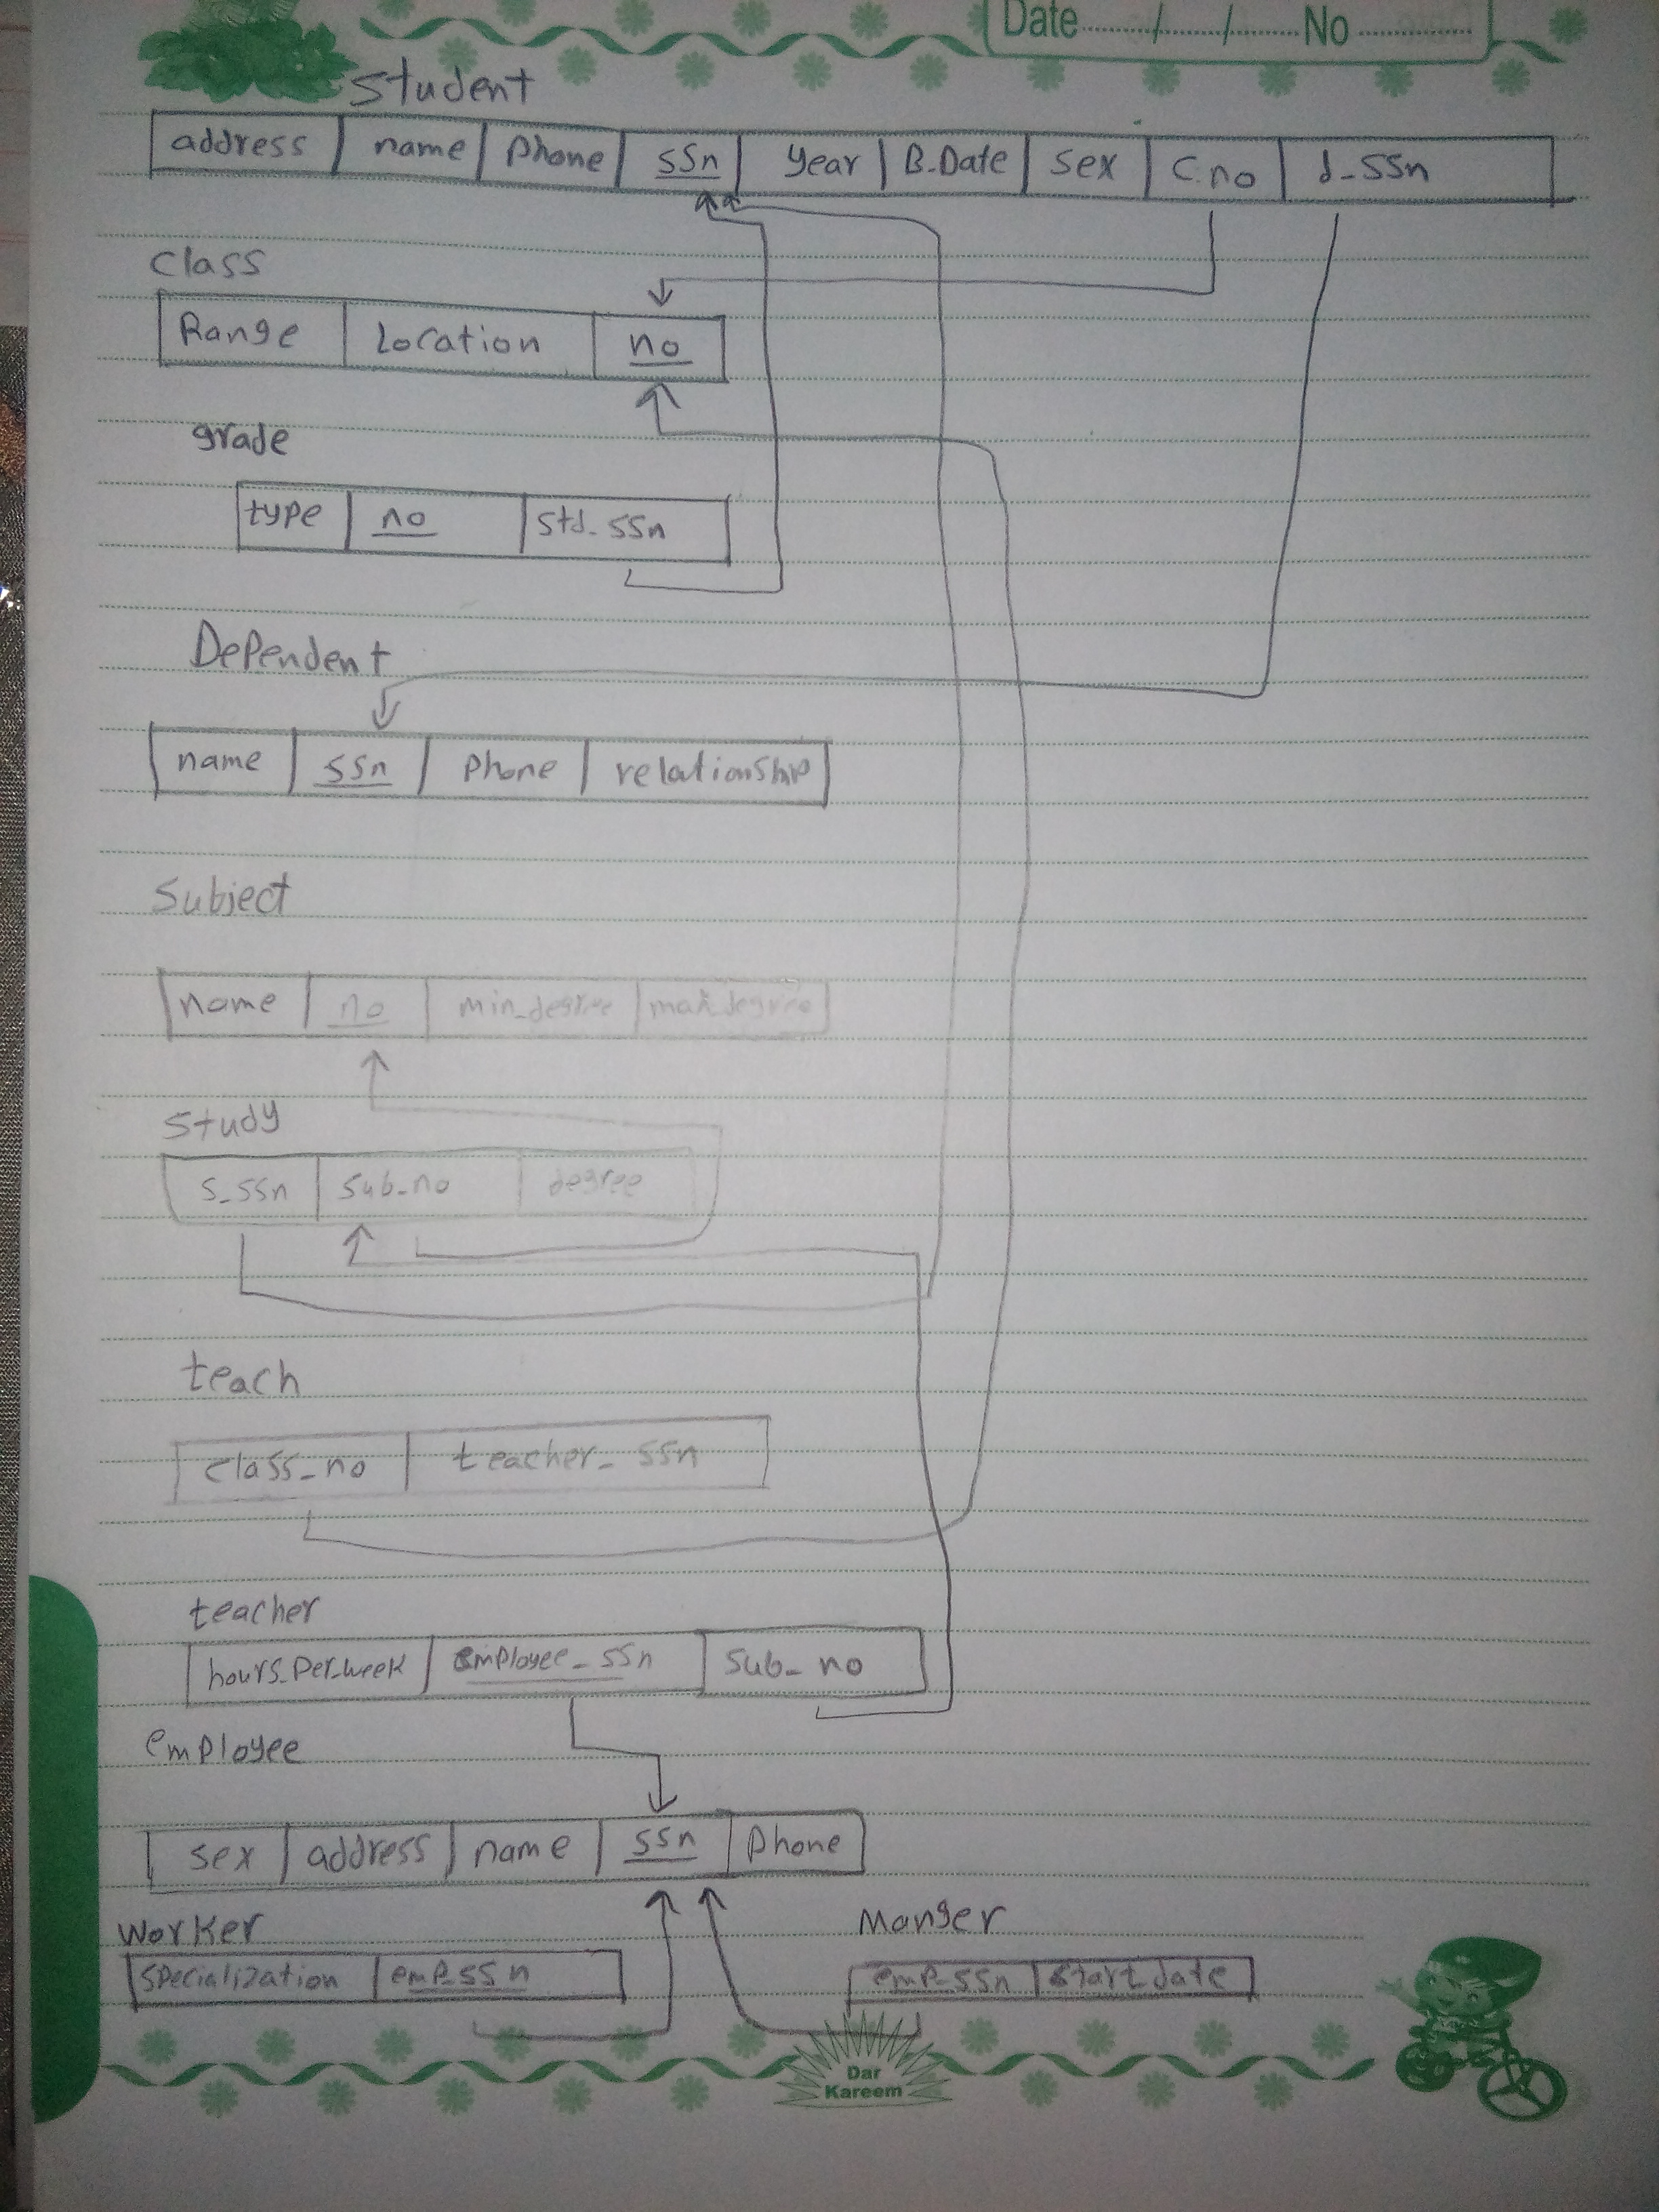 Date ......../......../........ No ................
Student
address name Phone SSn year B.Date Sex C.no d_SSn
Class
Range Location no
grade
type no Std_SSn
DePendent
name SSn Phone relationship
Subject
name no min_degree max_degree
Study
S_SSn Sub_no degree
teach
Class_no teacher_SSn
teacher
hours_Per_week employee_SSn Sub_no
emPloyee
Sex address name SSn Phone
Worker Manger
SPecialization emP_SSn emP_SSn Start_date
Dar
Kareem